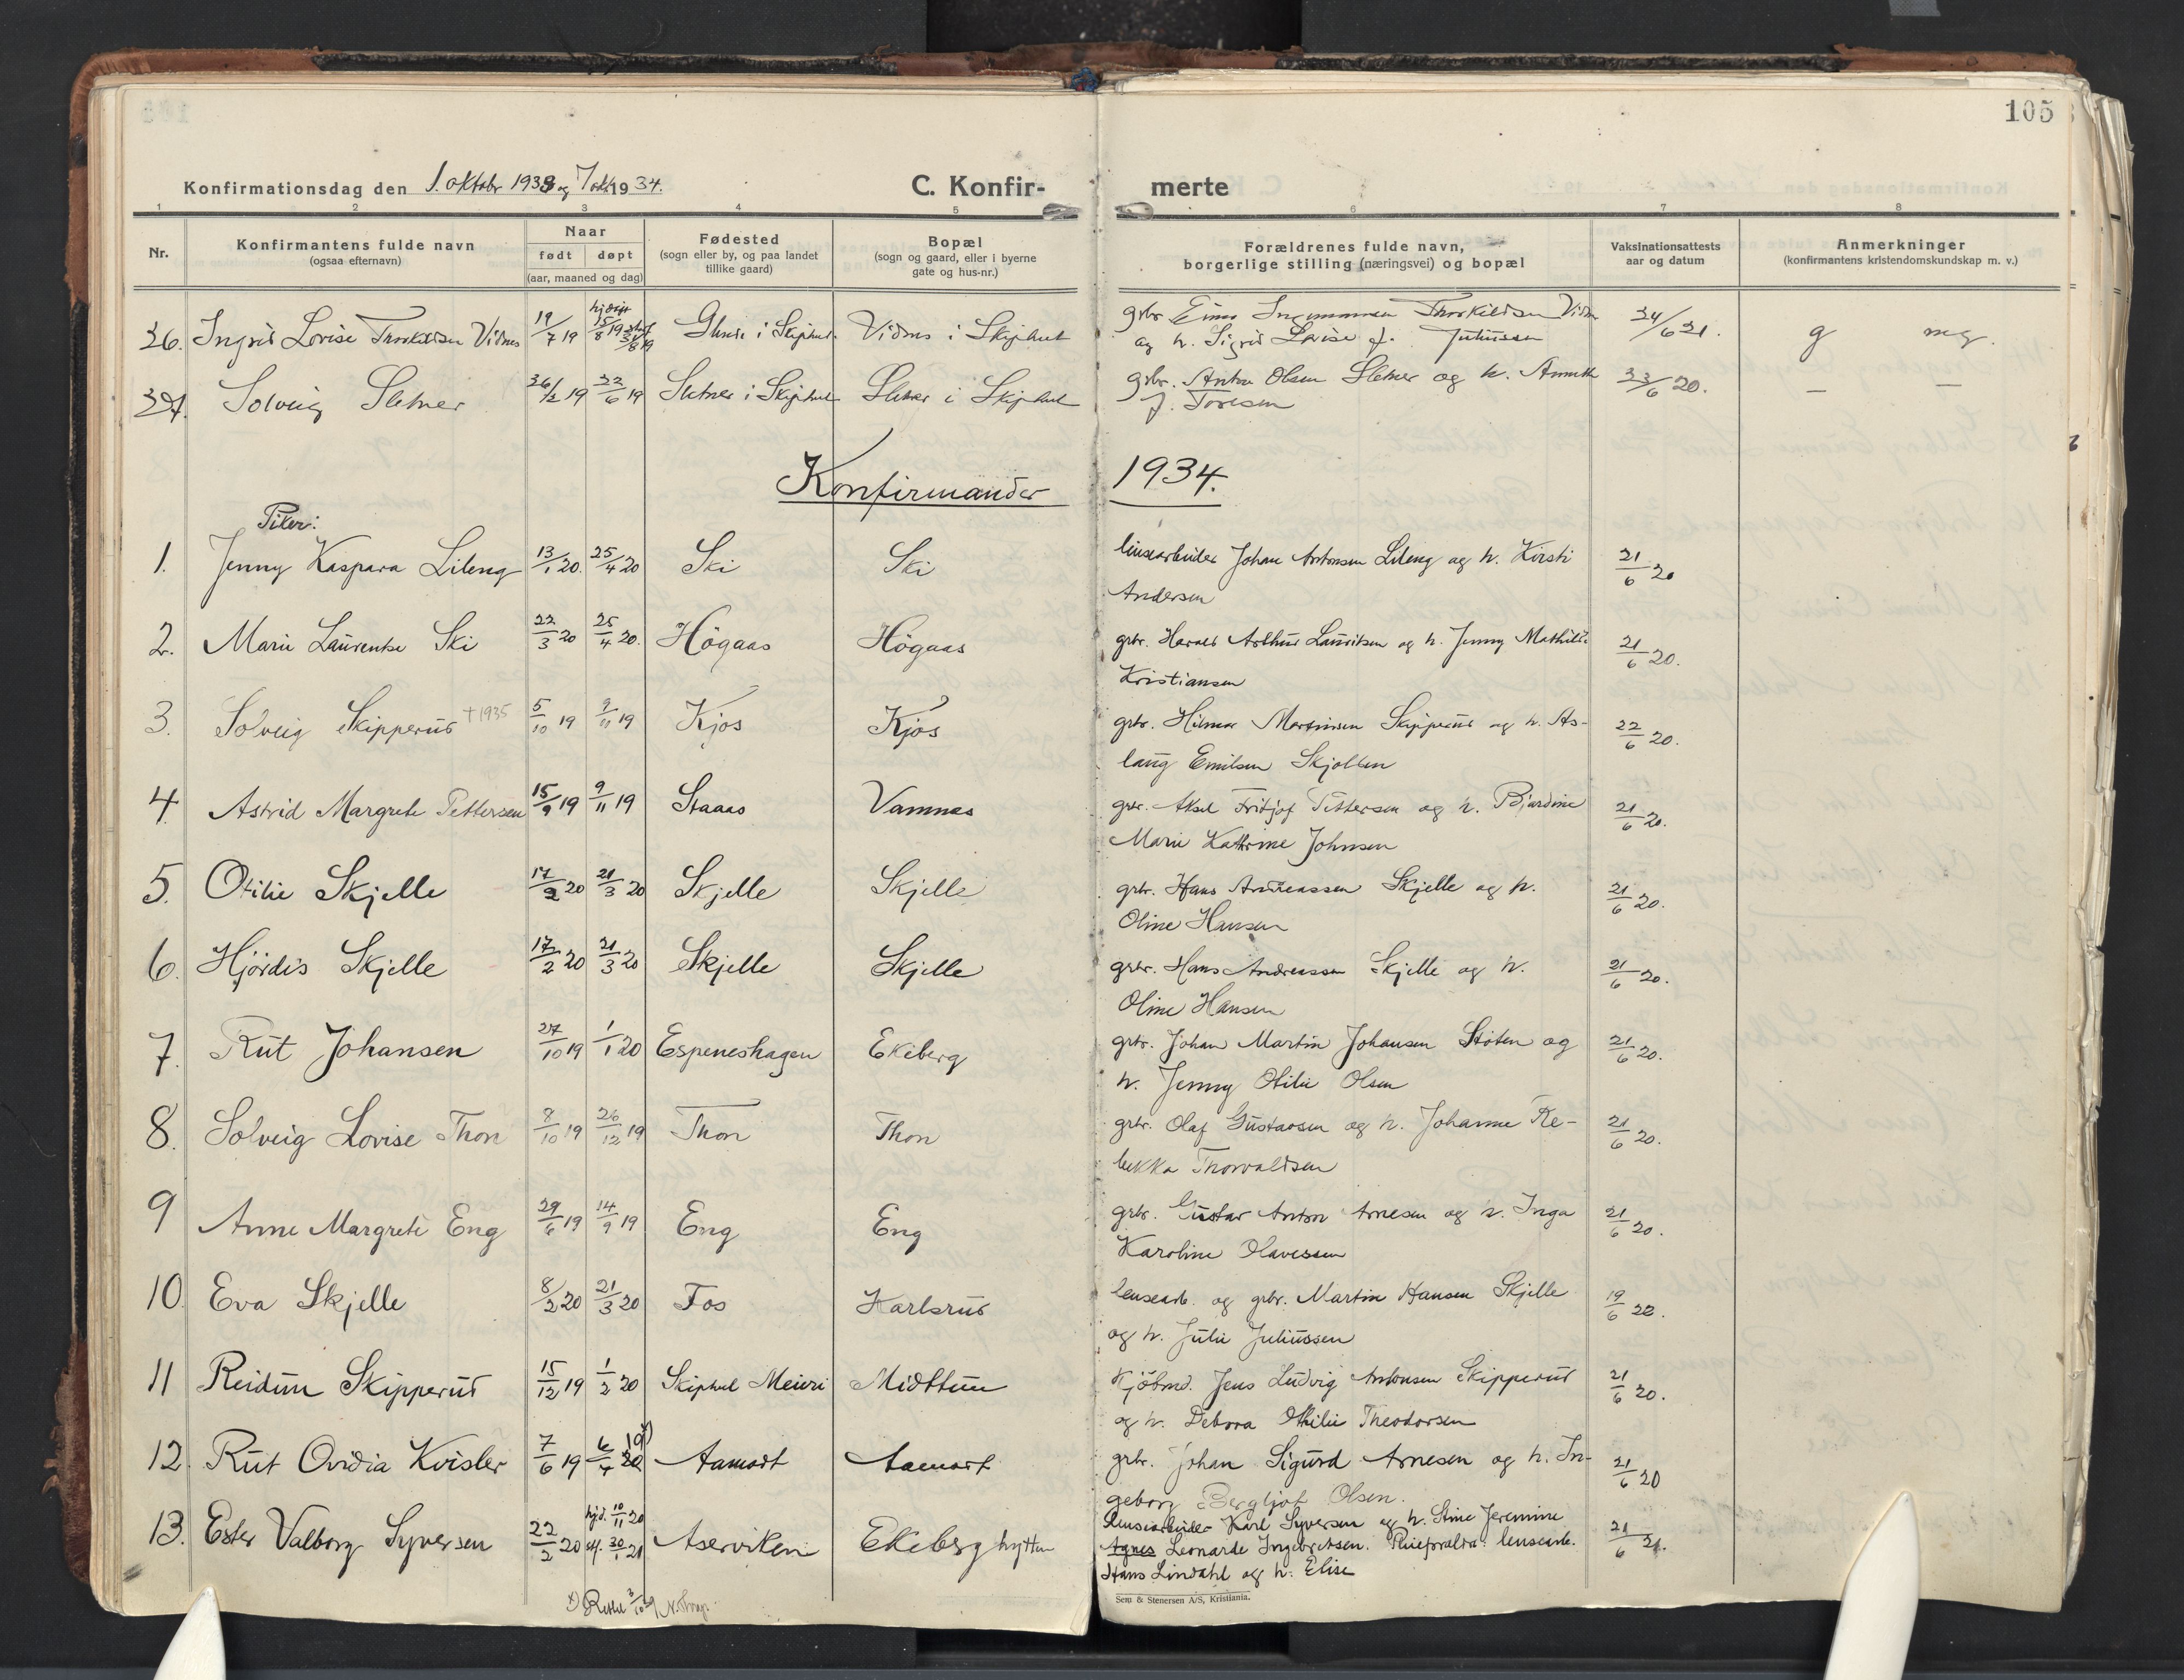 105
Konfirmationsdag den 1. oktobr 1933 og 7 okt. 1934.
C. Konfir-
merte
1 2 3 4 5 6 7 8
Nr.
Konfirmantens fulde navn
(ogsaa efternavn)
Naar
født døpt
(aar, maaned og dag)
Fødested
(sogn eller by, og paa landet
tillike gaard)
Bopæl
(sogn og gaard, eller i byerne
gate og hus-nr.)
Forældrenes fulde navn,
borgerlige stilling (næringsvei) og bopæl
Vaksinationsattests
aar og datum
Anmerkninger
(konfirmantens kristendomskundskap m. v.)
26. Ingrid Lovise Thorkildsen Vidnes 19/7 19 hjdøpt 15/8 19 31/8 19 i Skiphel. Vidnes i Skiphel
grbr. Thorkildsen
og h. Sigrid Lovise f. Juliussen 24/6 21. g meg.
27. Solveig Sletner 26/2 19 22/6 19 Sletner i Skiphel Sletner i Skiphel
grbr. Anton Olsen Sletner og h. Annette
f. Toresen 23/6 20. — —
Konfirmander 1934.
Piker:
1. Jenny Kaspara Lileng 13/1 20. 25/4 20 Ski Ski
lensearbeider Johan Antonsen Lileng og h. Kirsti
Andersen 21/6 20
2. Marie Laurentse Ski 22/3 20 25/4 20. Högaas Högaas
grbr. Harald Arthur Lauritsen og h. Jenny Mathilde
Kristiansen 21/6 20.
3. Solveig Skipperud † 1935 5/10 19 9/11 19 Kjos Kjos
grbr. Hilmar Martinsen Skipperud og h. As-
laug Emilsen Skjolden 22/6 20.
4. Astrid Margrete Pettersen 15/9 19 9/11 19 Staaas Vamnes
grbr. Aksel Fritjof Pettersen og h. Bjardine
Marie Kathrine Johnsen 21/6 20.
5. Otilie Skjelle 17/2 20 21/3 20 Skjelle Skjelle
grbr. Hans Andreassen Skjelle og h.
Oline Hansen 21/6 20.
6. Hjördis Skjelle 17/2 20 21/3 20 Skjelle Skjelle
grbr. Hans Andreassen Skjelle og h.
Oline Hansen 21/6 20.
7. Rut Johansen 27/10 19 1/1 20 Espeneshagen Ekeberg
grbr. Johan Martin Johansen Støten og
h. Jenny Otilie Olsen 21/6 20.
8. Solveig Lovise Thon 8/10 19 26/12 19 Thon Thon
grbr. Olaf Gustavsen og h. Johanne Re-
bekka Thorvaldsen 21/6 20.
9 Anne Margrete Eng 29/6 19 14/9 19 Eng Eng
grbr. Gustav Anton Arnesen og h. Inga
Karoline Olavessen 21/6 20.
10. Eva Skjelle 8/2 20 21/3 20 Fos Karlsrud
lensearb. og grbr. Martin Hansen Skjelle
og h. Julie Juliussen 19/6 22.
11 Reidun Skipperud 15/12 19 1/2 20 Skiphel Meieri Midttun
Kjöbmd. Jens Ludvig Antonsen Skipperud
og h. Debora Othilie Theodorsen 21/6 20.
12. Rut Ovidia Kvisler 7/6 19 6/4 20 19 Aamodt Aamodt
grbr. Johan Sigurd Arnesen og h. In-
geborg Bergljot Olsen. 21/6 20
13. Ester Valborg Syversen 22/2 20 hjd. 10/11 20 st. 30/1 21 Aserviken Ekeberghytten
Lensearbeider Karl Syversen og h. Stine Jeremine
Agnes Leonarde Ingebretsen. Pleieforældre: lensearb.
Hans Lindahl og h. Elise 21/6 21.
Rettet
Sem & Stenersen A/S, Kristiania.